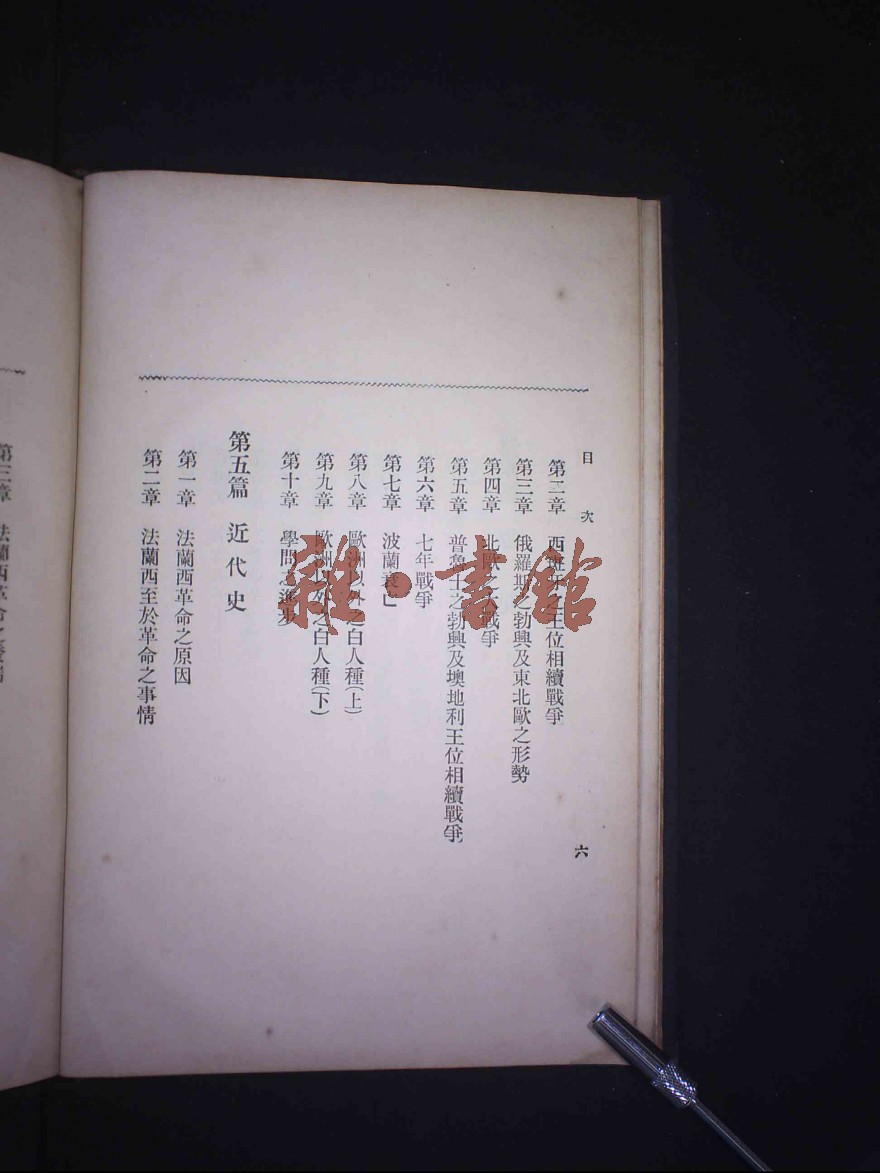 目次
六
第二章 西班牙之王位相續戰爭
第三章 俄羅斯之勃興及東北歐之形勢
第四章 北歐之大戰爭
第五章 普魯士之勃興及墺地利王位相續戰爭
第六章 七年戰爭
第七章 波蘭衰亡
第八章 歐洲以外之白人種(上)
第九章 歐洲以外之白人種(下)
第十章 學問之進步
第五篇 近代史
第一章 法蘭西革命之原因
第二章 法蘭西至於革命之事情
第三章 法蘭西革命之
雜·書館